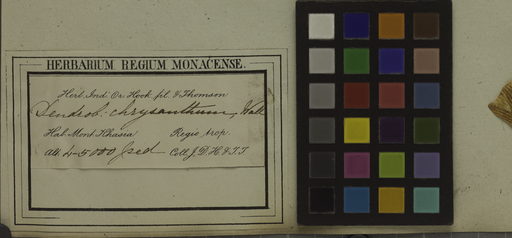 HERBARIUM REGIUM MONACENSE.
Herb. Ind. Or. Hook. fil. & Thomson
Dendrob: chrysanthum, Wall
Hab. Mont. Khasia Regio trop.
Alt. 4-5000 ped Coll. J.D.H. & T.T.